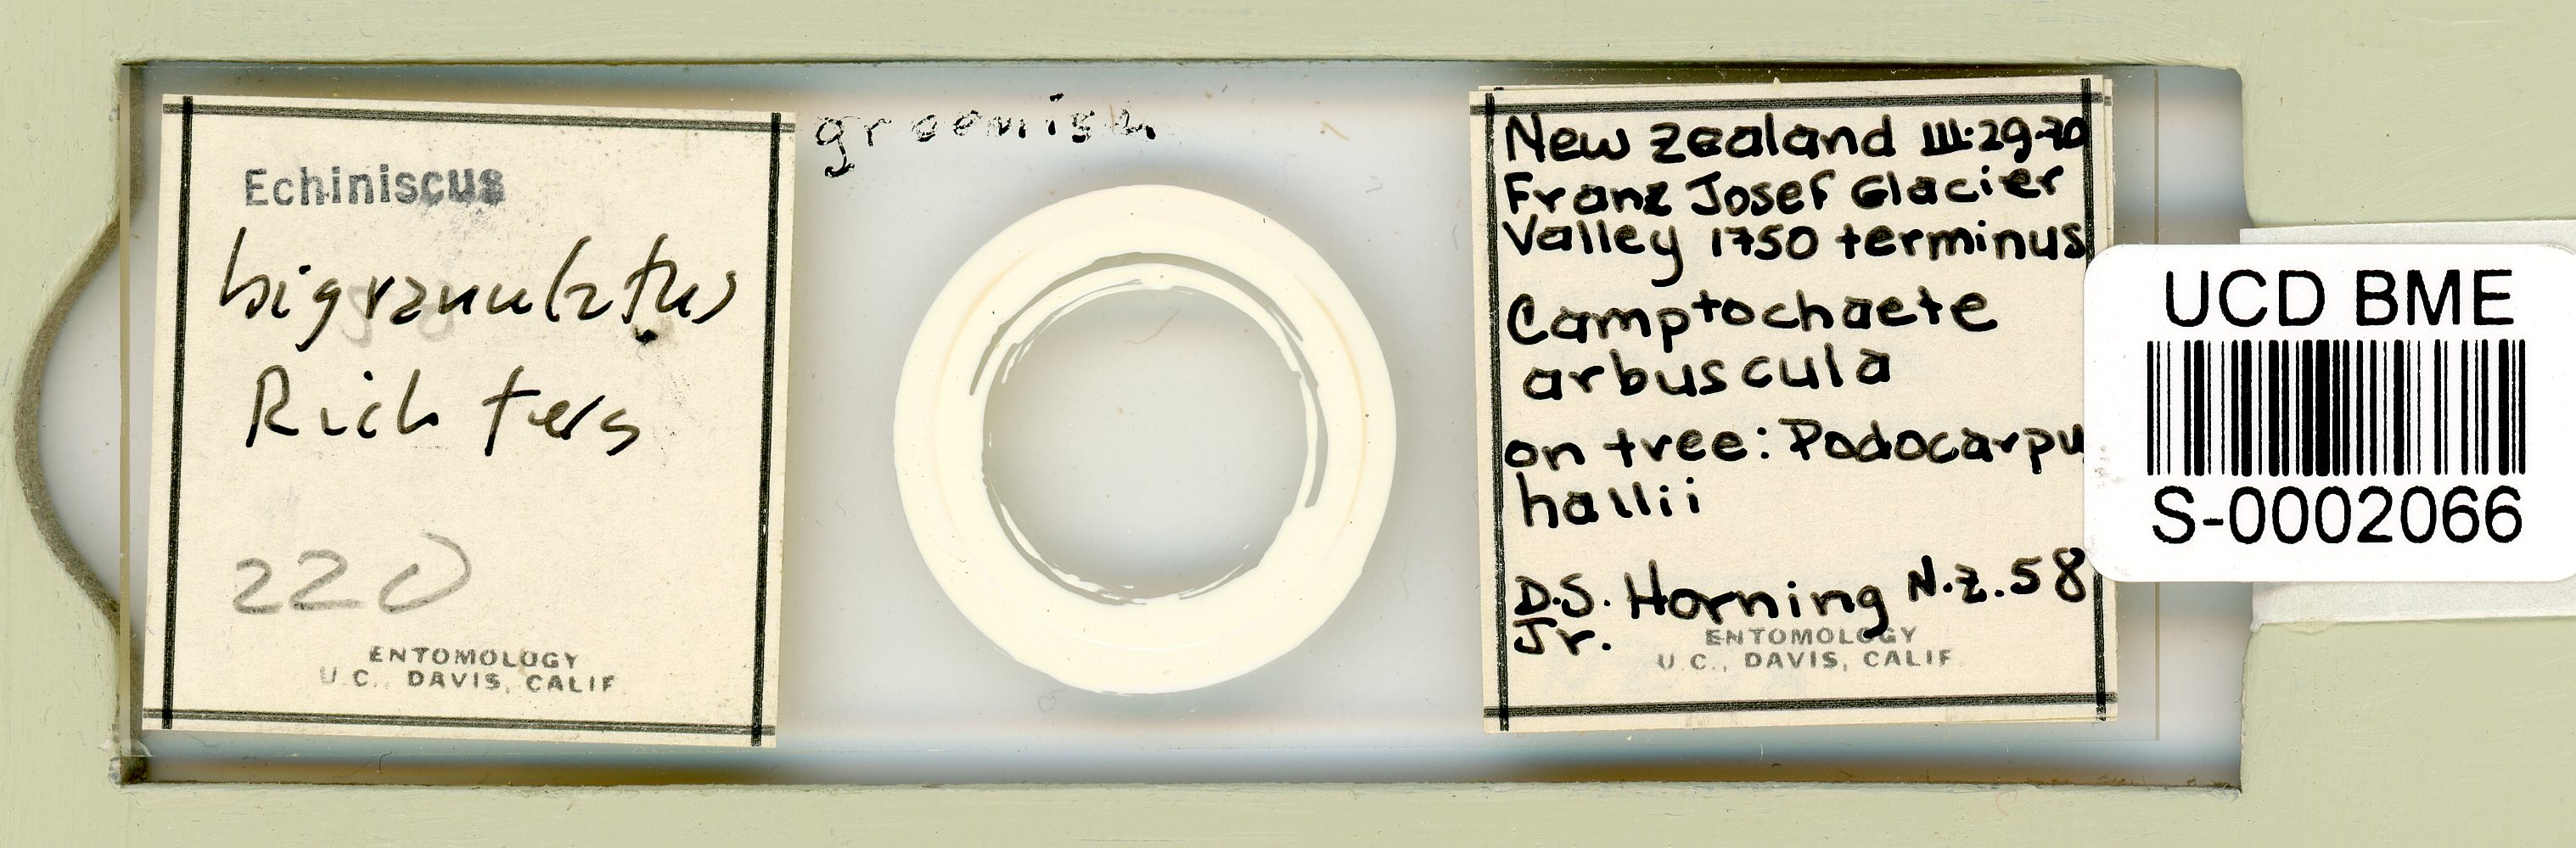 Echiniscus
bigranulatus
Richters
220
ENTOMOLOGY
U.C., DAVIS, CALIF
New Zealand III·29·70
Franz Josef Glacier
Valley 1750 terminus
Camptochaete
arbuscula
on tree: Podocarpu
hallii
D.S. Horning N.Z.58
Jr.
ENTOMOLOGY
U.C., DAVIS, CALIF
UCD BME
S-0002066